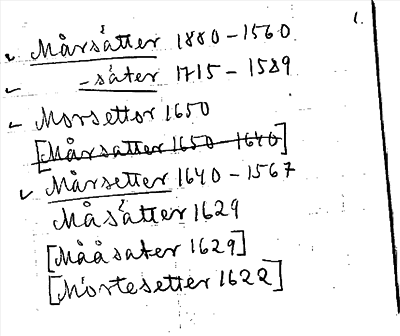 ✓ Mårsätter 1880-1560 1.
✓ -säter 1715-1589
✓ Morsettor 1650
[Mårsätter 1650-1640]
✓ Mårsetter 1640-1567
Måsätter 1629
[Mååsater 1629]
[Mortesetter 1622]